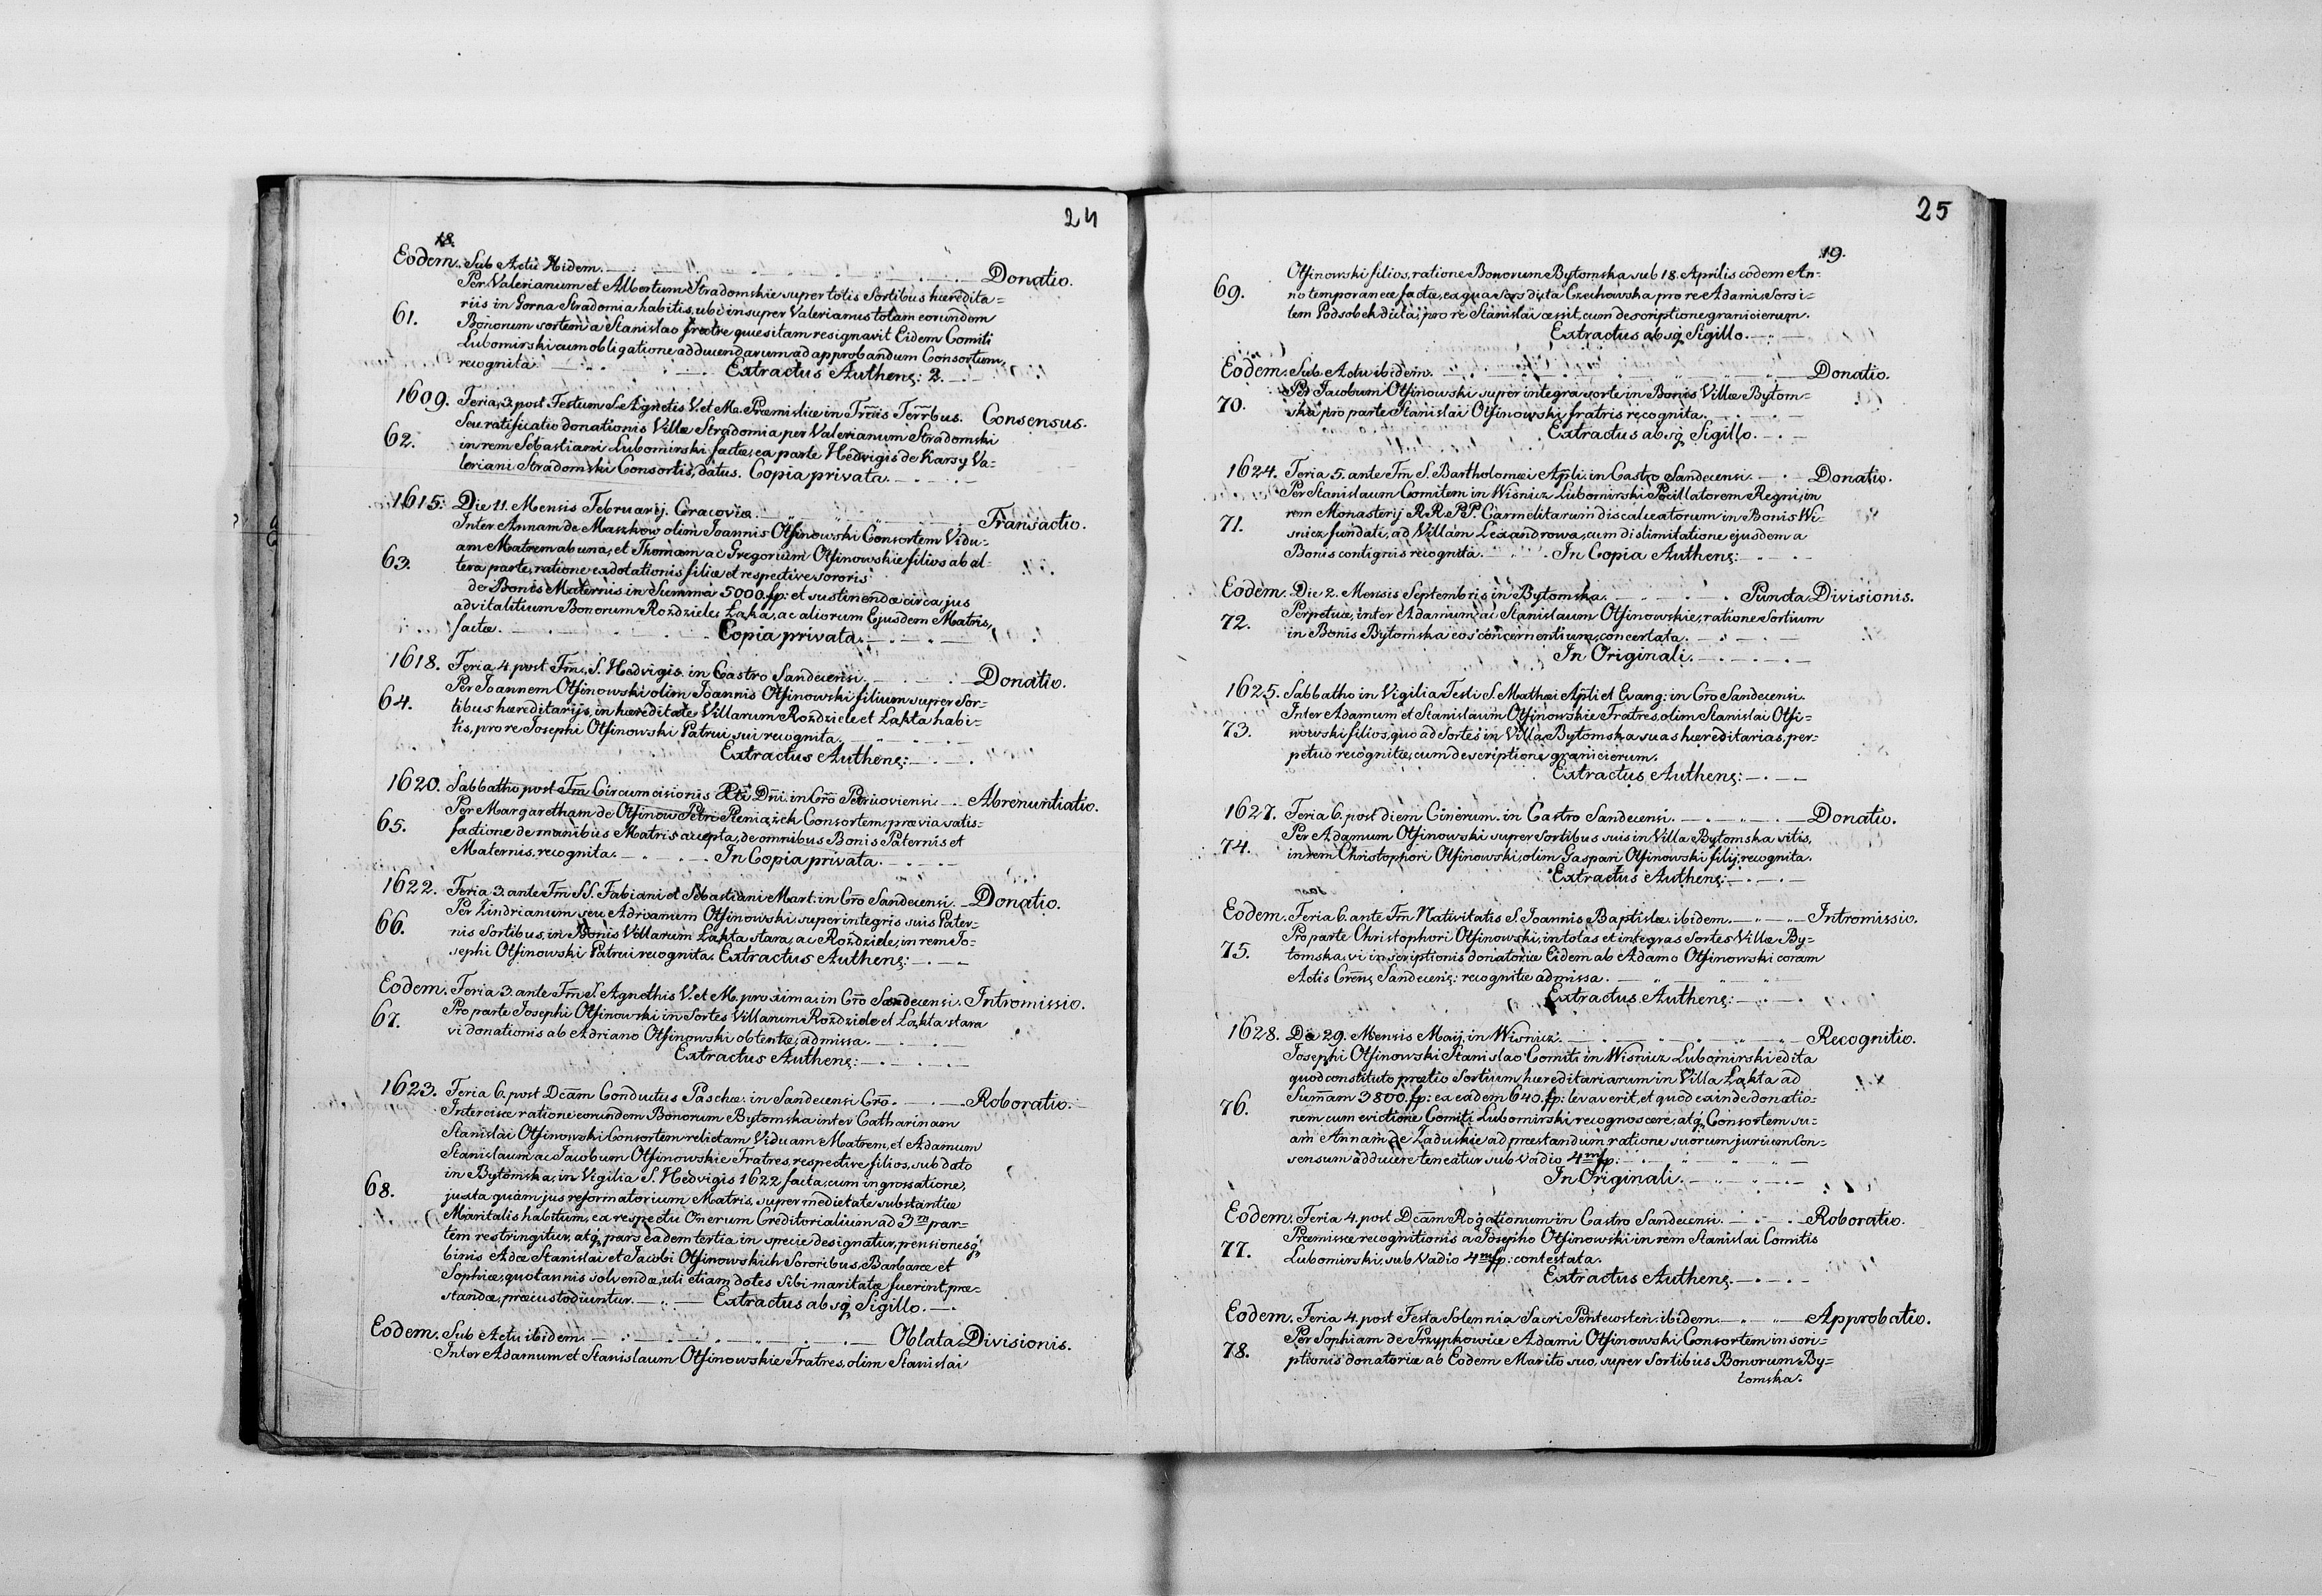 24
18.
Eodem. Sub Actu Ibidem. Donatio.
Per Valerianum et Albertum Stradomskie super totis Sortibus hæredita=
riis in Gorna Stradomia habitis, ubi insuper Valerianus totam eorundem
61. Bonorum sortem a Stanislao fratre quesitam resignavit Eidem Comiti
Lubomirski cum obligatione adducendarum ad approbandum Consortum,
recognita. Extractus Authenꝫ: 2.
1609. Feria 3. post Festum S. Agnetis V. et M. Præmislice in Trm̃is Terr̃bus. Consensus.
Seu ratificatio donationis Villæ Stradomia per Valerianum Stradomski
62. in rem Sebastiani Lubomirski factæ, ex parte Hedvigis de Karsy Va=
leriani Stradomski Consortis, datus. Copia privata.
1615. Die 11. Mensis Februarij. Cracoviæ. Transactio.
Inter Annam de Maszkow olim Joannis Otfinowski Consortem Vidu=
am Matrem ab una, et Thomam ac Gregorium Otfinowskie filios ab al=
63. tera parte, ratione exdotationis filiæ et respective sororis
de Bonis Maternis in Summa 5000. fp: et sustinendæ circa jus
advitalitium Bonorum Rozdziele Łąka, ac aliorum Ejusdem Matris,
factæ. Copia privata.
1618. Feria 4. post Fm̃. S. Hedvigis in Castro Sandecensi. Donatio.
Per Joannem Otfinowski olim Joannis Otfinowski filium super Sor=
64. tibus hæreditarijs, in hæreditate Villarum Rozdziele et Łąkta habi=
tis, pro re Josephi Otfinowski Patrui sui recognita.
Extractus Authenꝫ:
1620. Sabbatho post Fm̃ Circumcisionis Xti Dñi. in Cr̃o Petricoviensi Abrenuntiatio.
Per Margaretham de Otfinow Petri Pieniążek Consortem, prævia satis=
65. factione de manibus Matris accepta, de omnibus Bonis Paternis et
Maternis, recognita. In Copia privata.
1622. Feria 3. ante Fm̃ S.S. Fabiani et Sebastiani Mart: in Cr̃o Sandecensi. Donatio.
Per Zindrianum seu Adrianum Otfinowski, super integris suis Pater=
66. nis Sortibus, in Bonis Villarum Łąkta stara, ac Rozdziele, in rem Jo=
sephi Otfinowski Patrui recognita. Extractus Authenꝫ:
Eodem. Feria 3. ante Fm̃ S. Agnethis V. et M. proxima in Cr̃o Sandecensi. Intromissio.
67. Pro parte Josephi Otfinowski in Sortes Villarum Rozdziele et Łąkta stara
vi donationis ab Adriano Otfinowski obtentæ, admissa.
Extractus Authenꝫ:
1623. Feria 6. post Dcãm Conductus Paschæ in Sandecensi Cr̃o. Roboratio.
Intercisæ ratione eorundem Bonorum Bytomska inter Catharinam
Stanislai Otfinowski Consortem relictam Viduam Matrem, et Adamum
Stanislaum ac Jacobum Otfinowskie Fratres, respective filios, sub dato
in Bytomska, in Vigilia S. Hedvigis 1622 facta, cum ingrossatione,
68. juxta quam jus reformatorium Matris, super medietate substantiæ
Maritalis habitum, ex respectu Onerum Creditorialium ad 3m par=
tem restringitur, atqꝫ pars eadem tertia in specie designatur, pensionesqꝫ
binis Adæ Stanislai et Jacobi Otfinowskich Sororibus, Barbaræ et
Sophiæ, quotannis solvendæ, uti etiam dotes sibi maritatæ fuerint, præ=
standæ, præcustodiuntur. Extractus absqꝫ Sigillo.
Eodem. Sub Actu ibidem. Oblata Divisionis.
Inter Adamum et Stanislaum Otfinowskie Fratres, olim Stanislai
25
19.
Otfinowski filios, ratione Bonorum Bytomska sub 18. Aprilis eodem An=
69. no temporaneæ factæ, ex qua Sors dicta Czechowska pro re Adami, Sors i=
tem Podsobek dicta, pro re Stanislai cessit, cum descriptione granicierum.
Extractus absqꝫ Sigillo.
Eodem. Sub Actu ibidem. Donatio.
70. Per Jacobum Otfinowski super integra sorte in Bonis Villæ Bytom=
ska pro parte Stanislai Otfinowski fratris recognita.
Extractus absqꝫ Sigillo.
1624. Feria 5. ante Fm̃ S. Bartholomæi Ap̃li. in Castro Sandecensi. Donatio.
Per Stanislaum Comitem in Wisnicz Lubomirski Pocillatorem Regni, in
71. rem Monasterij R.R. P.P. Carmelitarum discalceatorum in Bonis Wi=
snicz fundati, ad Villam Lexandrowa, cum dislimitatione ejusdem a
Bonis contignis recognita. In Copia Authenꝫ:
Eodem. Die 2. Mensis Septembris in Bytomska. Puncta Divisionis.
72. Perpetuæ, inter Adamum, ac Stanislaum Otfinowskie, ratione Sortium
in Bonis Bytomska eos concernentium, concertata.
In Originali.
1625. Sabbatho in Vigilia Festi S. Mathæi Ap̃li et Evang: in Cr̃o Sandecensi.
Inter Adamum et Stanislaum Otfinowskie Fratres, olim Stanislai Otfi=
73. nowski filios, quo ad Sortes in Villa Bytomska suas hæreditarias, per=
petuo recognitæ, cum descriptione graniciorum.
Extractus Authenꝫ:
1627. Feria 6. post diem Cinerum. in Castro Sandecensi. Donatio.
74. Per Adamum Otfinowski super Sortibus suis in Villa Bytomska sitis,
in rem Christophori Otfinowski, olim Gaspari Otfinowski filij, recognita.
Extractus Authenꝫ:
Eodem. Feria 6. ante Fm̃ Nativitatis S. Joannis Baptistæ ibidem. Intromissio.
Pro parte Christophori Otfinowski, in totas et integras Sortes Villæ By=
75. tomska, vi inscriptionis donatoriæ Eidem ab Adamo Otfinowski coram
Actis Cr̃enꝫ Sandecenꝫ: recognitæ admissa.
Extractus Authenꝫ:
1628. Die 29. Mensis Maij. in Wisnicz. Recognitio.
Josephi Otfinowski Stanislao Comiti in Wisnicz Lubomirski edita
quod constituto prætio Sortium hæreditariarum in Villa Łąkta ad
76. Sum̃am 3800. fp: ex eadem 640. fp: levaverit, et quod exinde donatio=
nem cum evictione Comiti Lubomirski recognoscere, atqꝫ Consortem su=
am Annam de Zaduskie ad præstandum ratione suorum jurium Con=
sensum adducere teneatur sub Vadio 4m fp:
In Originali.
Eodem. Feria 4. post Dcãm Rogationum in Castro Sandecensi. Roboratio.
77. Præmissæ recognitionis a Josepho Otfinowski in rem Stanislai Comitis
Lubomirski, sub Vadio 4m fp: contestata.
Extractus Authenꝫ.
Eodem. Feria 4. post Festa Solennia Sacri Pentecosten: ibidem. Approbatio.
78. Per Sophiam de Przypkowice Adami Otfinowski Consortem inscri=
ptionis donatoriæ ab Eodem Marito suo, super Sortibus Bonorum By=
tomska.